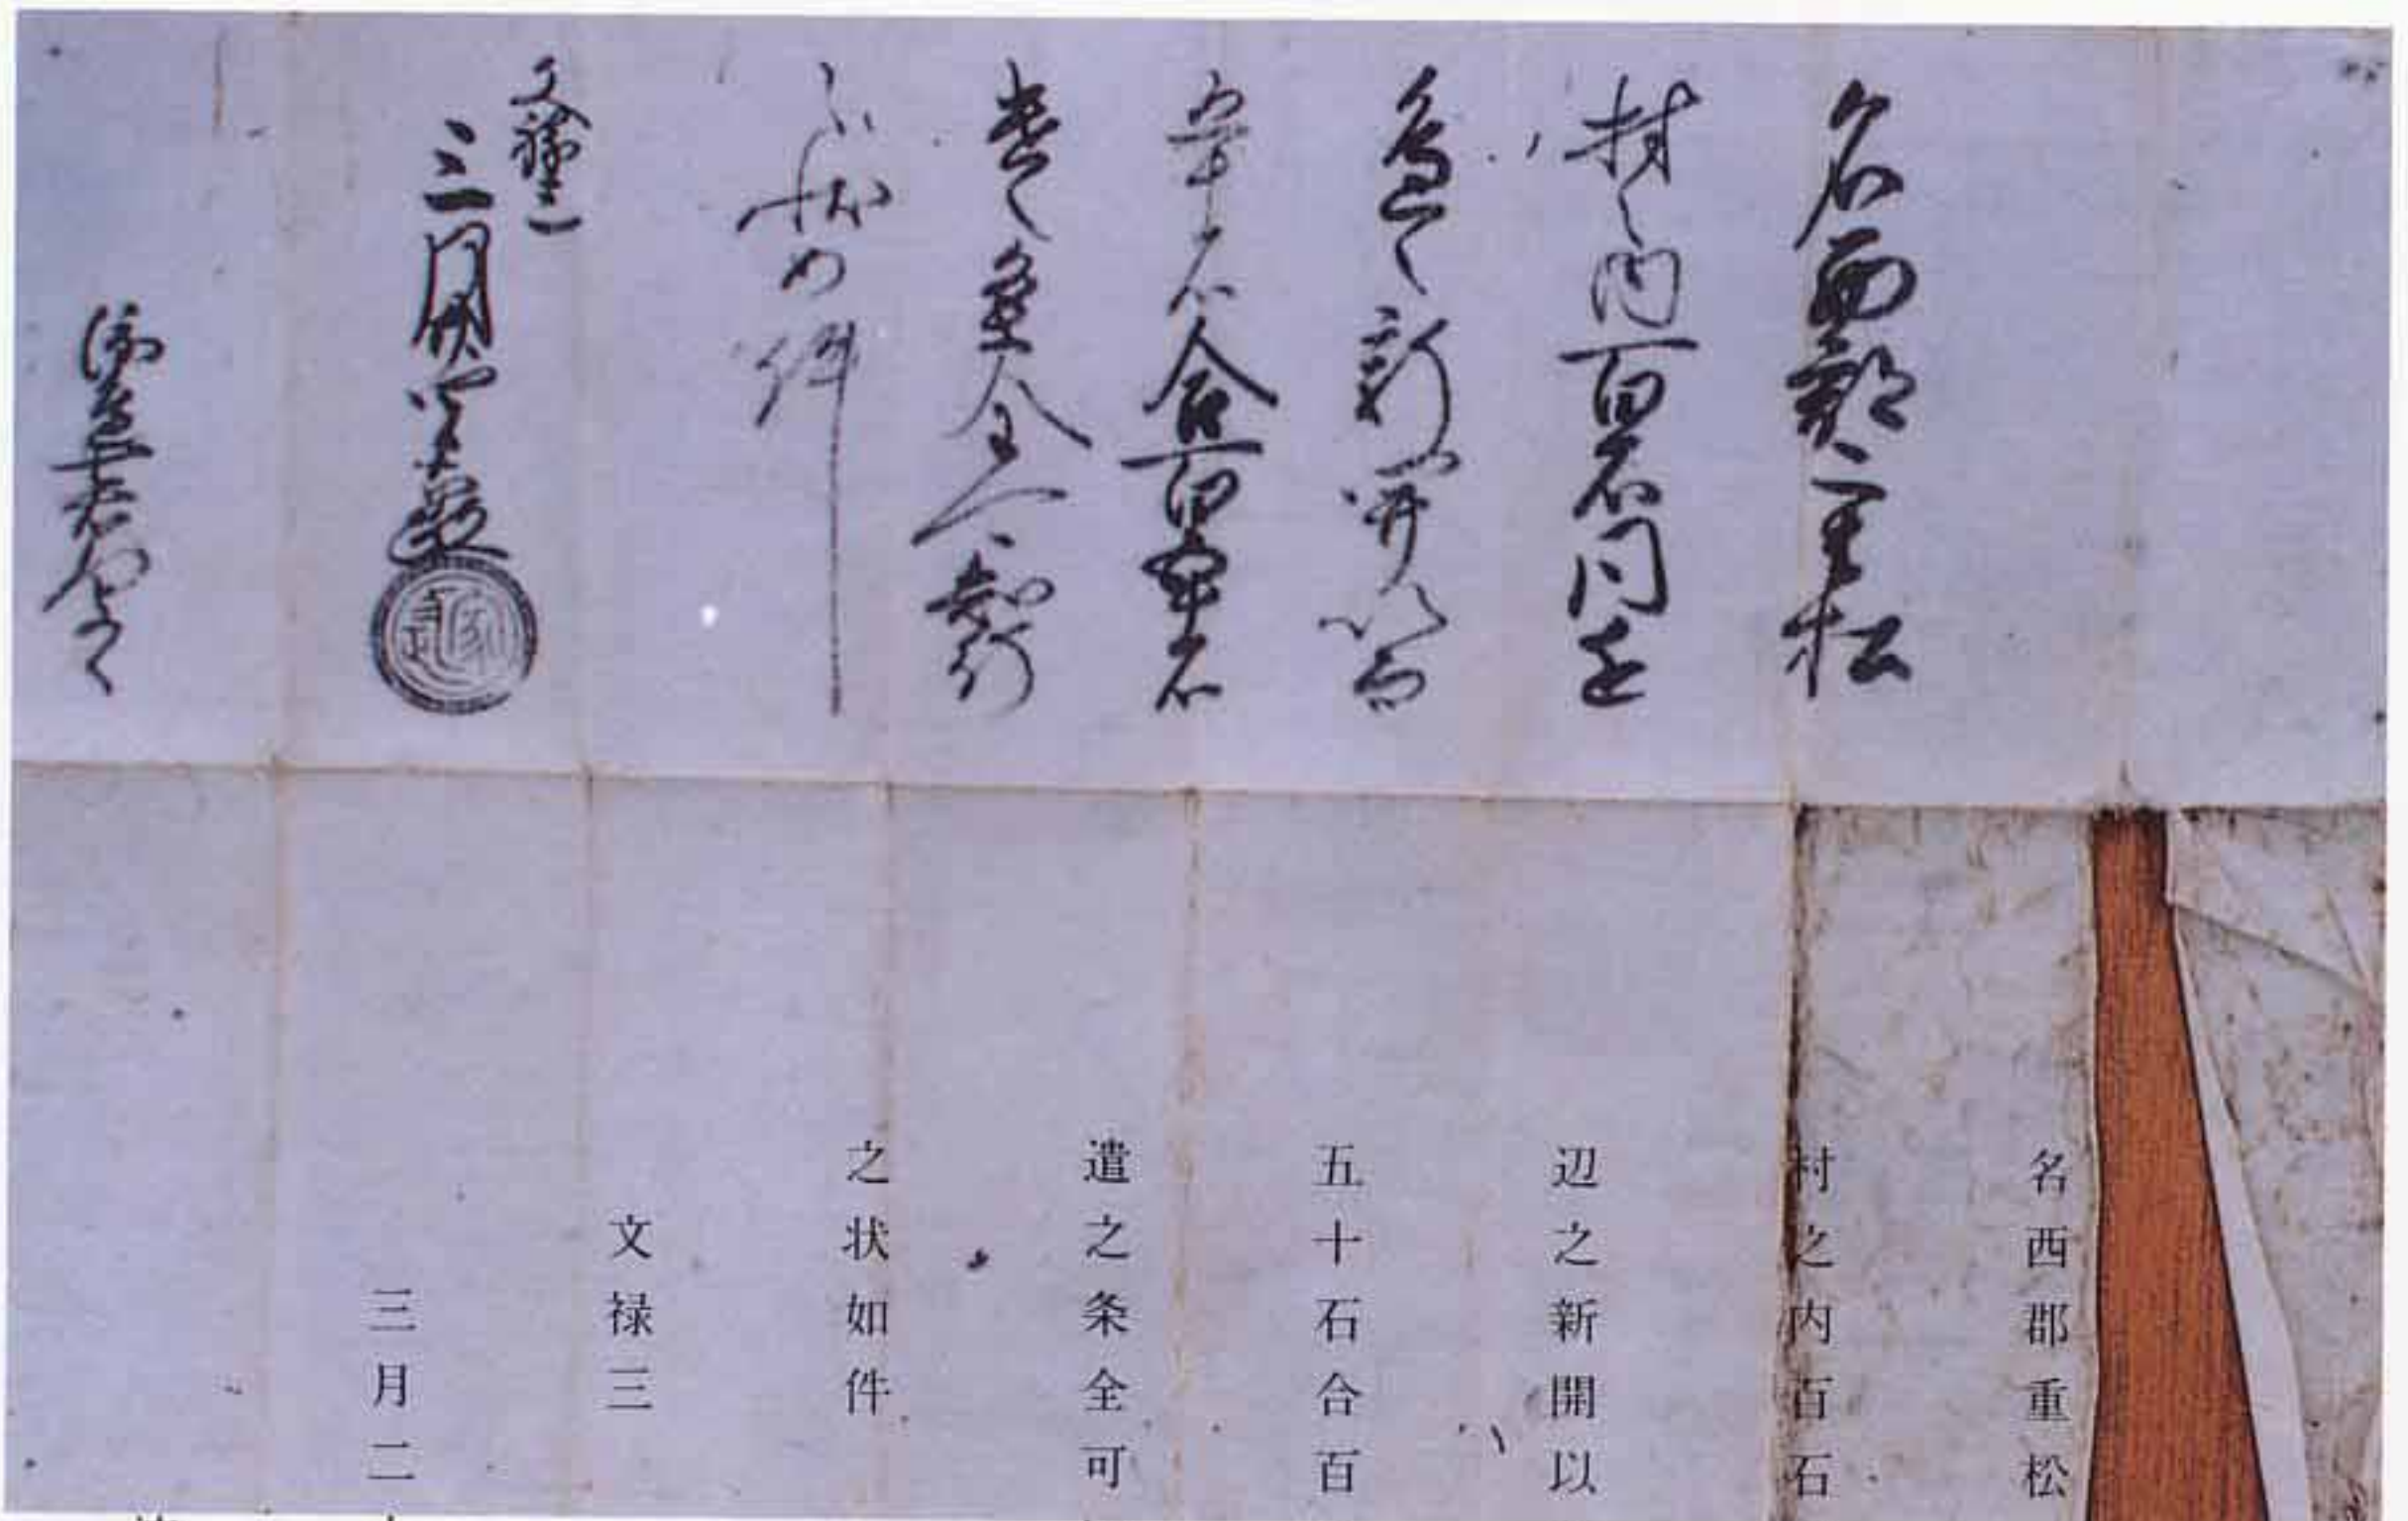 名西郡重松
村之内百石同在
辺之新開以百
五十石合百五十石
遣之条全可知行
之状如件
文禄三
三月廿
名西郡重松
村之内百石
辺之新開以
五十石合百
遣之条全可
之状如件
文禄三
三月二